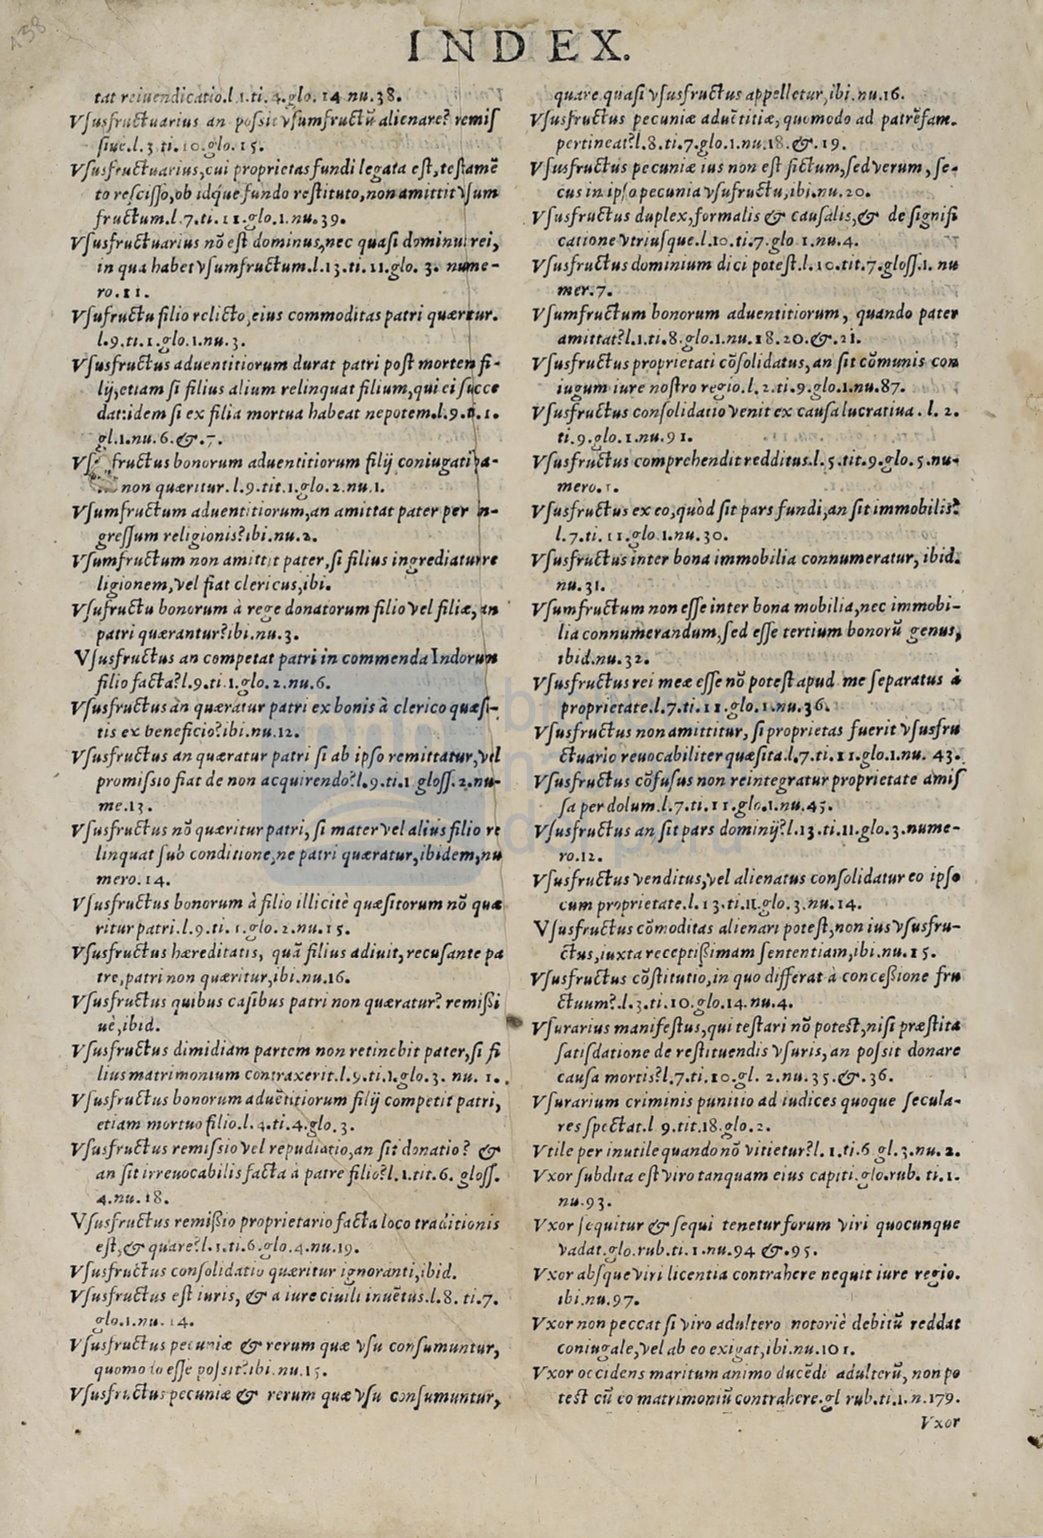 138
INDEX.
tat reiuendicatio.l.1.ti.4.glo.14.nu.38.
Vſusfructuarius an poſsit vſumfructū alienare? remiſ
ſiue.l.3.ti.10.glo.15.
Vſusfructuarius,cui proprietas fundi legata eſt,teſtamē
to reſciſſo,ob idque fundo reſtituto,non amittit vſum
fructum.l.7.ti.11.glo.1.nu.39.
Vſusfructuarius nō eſt dominus,nec quaſi dominus rei,
in qua habet vſumfructum.l.13.ti.11.glo.3.nume-
ro.11.
Vſufructu filio relicto,eius commoditas patri quæritur.
l.9.ti.1.glo.1.nu.3.
Vſusfructus aduentitiorum durat patri poſt mortem fi-
lij,etiam ſi filius alium relinquat filium,qui ei ſucce
dat:idem ſi ex filia mortua habeat nepotem.l.9.ti.1.
gl.1.nu.6.&.7.
fructus bonorum aduentitiorum filij coniugati pa-
non quæritur.l.9.tit.1.glo.2.nu.1.
Vſumfructum aduentitiorum,an amittat pater per in-
greſſum religionis?ibi.nu.2.
Vſumfructum non amittit pater,ſi filius ingrediatur re
ligionem,vel fiat clericus,ibi.
Vſufructu bonorum à rege donatorum filio vel filiæ,an
patri quærantur?ibi.nu.3.
Vſusfructus an competat patri in commenda Indorum
filio facta?l.9.ti.1.glo.2.nu.6.
Vſusfructus àn quæratur patri ex bonis à clerico quæſi-
tis ex beneficio?ibi.nu.12.
Vſusfructus an quæratur patri ſi ab ipſo remittatur,vel
promiſsio fiat de non acquirendo?l.9.ti.1.gloſſ.2.nu-
me.13.
Vſusfructus nō quæritur patri, ſi mater vel alius filio re
linquat ſub conditione,ne patri quæratur,ibidem,nu
mero.14.
Vſusfructus bonorum à filio illicitè quæſitorum nō quæ
ritur patri.l.9.ti.1.glo.2.nu.15.
Vſusfructus hæreditatis, quā filius adiuit,recuſante pa
tre,patri non quæritur,ibi.nu.16.
Vſusfructus quibus caſibus patri non quæratur? remißi
uè,ibid.
Vſusfructus dimidiam partem non retinebit pater,ſi fi
lius matrimonium contraxerit.l.9.ti.1.glo.3.nu.1.
Vſusfructus bonorum aduētitiorum filij competit patri,
etiam mortuo filio.l.4.ti.4.glo.3.
Vſusfructus remiſsio vel repudiatio,an ſit donatio? &
an ſit irreuocabilis facta à patre filio?l.1.tit.6.gloſſ.
4.nu.18.
Vſusfructus remißio proprietario facta loco traditionis
eſt,& quare?l.1.ti.6.glo.4.nu.19.
Vſusfructus conſolidatio quæritur ignoranti,ibid.
Vſusfructus eſt iuris, & a iure ciuili inuētus.l.8.ti.7.
glo.1.nu.14.
Vſusfructus pecuniæ & rerum quæ vſu conſumuntur,
quomodo eſſe poſsit?ibi.nu.15.
Vſusfructus pecuniæ & rerum quæ vſu conſumuntur,
quare quaſi vſusfructus appelletur,ibi.nu.16.
Vſusfructus pecuniæ aduētitiæ, quomodo ad patrēfam.
pertineat?l.8.ti.7.glo.1.nu.18.&.19.
Vſusfructus pecuniæ ius non eſt fictum,ſed verum, ſe-
cus in ipſo pecunia vſufructu,ibi.nu.20.
Vſusfructus duplex,formalis & cauſalis,& de ſignifi
catione vtriuſque.l.10.ti.7.glo.1.nu.4.
Vſusfructus dominium dici poteſt.l.10.tit.7.gloſſ.1.nu
mer.7.
Vſumfructum bonorum aduentitiorum, quando pater
amittat?l.1.ti.8.glo.1.nu.18.20.&.21.
Vſusfructus proprietati cōſolidatus,an ſit cōmunis con
iugum iure noſtro regio.l.2.ti.9.glo.1.nu.87.
Vſusfructus conſolidatio venit ex cauſa lucratiua. l. 2.
ti.9.glo.1.nu.91.
Vſusfructus comprehendit redditus.l.5.tit.9.glo.5.nu-
mero.1.
Vſusfructus ex eo,quòd ſit pars fundi,an ſit immobilis?
l.7.ti.11.glo.1.nu.30.
Vſusfructus inter bona immobilia connumeratur, ibid.
nu.31.
Vſumfructum non eſſe inter bona mobilia,nec immobi-
lia connumerandum,ſed eſſe tertium bonorū genus,
ibid.nu.32.
Vſusfructus rei meæ eſſe nō poteſt apud me ſeparatus à
proprietate.l.7.ti.11.glo.1.nu.36.
Vſusfructus non amittitur, ſi proprietas fuerit vſusfru
ctuario reuocabiliter quæſita.l.7.ti.11.glo.1.nu.43.
Vſusfructus cōfuſus non reintegratur proprietate amiſ
ſa per dolum.l.7.ti.11.glo.1.nu.45.
Vſusfructus an ſit pars dominij?l.13.ti.11.glo.3.nume-
ro.12.
Vſusfructus venditus,vel alienatus conſolidatur eo ipſo
cum proprietate.l.13.ti.11.glo.3.nu.14.
Vſusfructus cōmoditas alienari poteſt,non ius vſusfru-
ctus,iuxta receptißimam ſententiam,ibi.nu.15.
Vſusfructus cōſtitutio,in quo differat à conceßione fru
ctuum?.l.3.ti.10.glo.14.nu.4.
Vſurarius manifeſtus,qui teſtari nō poteſt,niſi præſtita
ſatiſdatione de reſtituendis vſuris,an poſsit donare
cauſa mortis?l.7.ti.10.gl. 2.nu.35.&.36.
Vſurarium criminis punitio ad iudices quoque ſecula-
res ſpectat.l 9.tit.18.glo.2.
Vtile per inutile quando nō vitietur?l.1.ti.6 gl.3.nu.2.
Vxor ſubdita eſt viro tanquam eius capiti.glo.rub. ti.1.
nu.93.
Vxor ſequitur & ſequi tenetur forum viri quocunque
vadat.glo.rub.ti.1.nu.94 &.95.
Vxor abſque viri licentia contrahere nequit iure regio.
ibi.nu.97.
Vxor non peccat ſi viro adultero notoriè debitū reddat
coniugale,vel ab eo exigat,ibi.nu.101.
Vxor occidens maritum animo ducēdi adulterū, non po
teſt cū eo matrimoniū contrahere.gl rub.ti.1.n.179.
Vxor